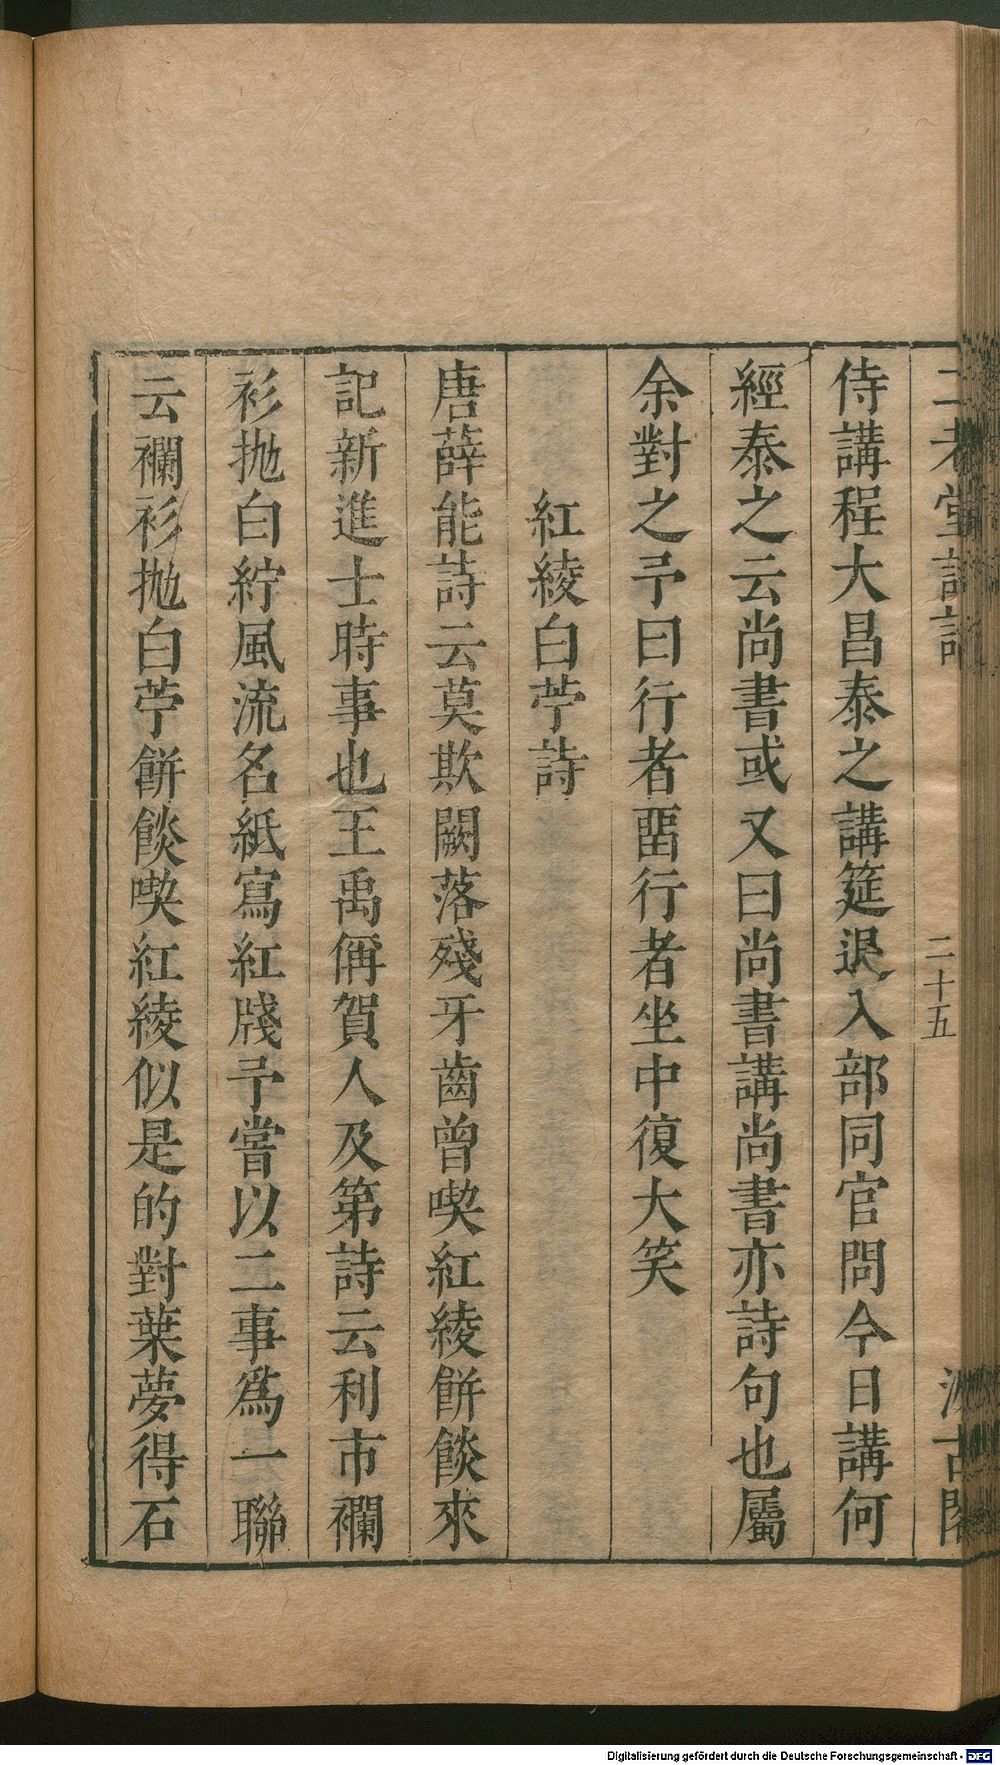 二老堂詩話 二十五 汲古閣
侍講程大昌泰之講筵退入部同官問今日講何
經泰之云尚書或又曰尚書講尚書亦詩句也屬
余對之予曰行者畱行者坐中復大笑
紅綾白苧詩
唐薛能詩云莫欺闕落殘牙齒曾喫紅綾餅餤來
記新進士時事也王禹偁賀人及第詩云利市襴
衫抛白紵風流名紙寫紅牋予嘗以二事爲一聯
云襴衫抛白苧餅餤喫紅綾似是的對葉夢得石
Digitalisierung gefördert durch die Deutsche Forschungsgemeinschaft - DFG